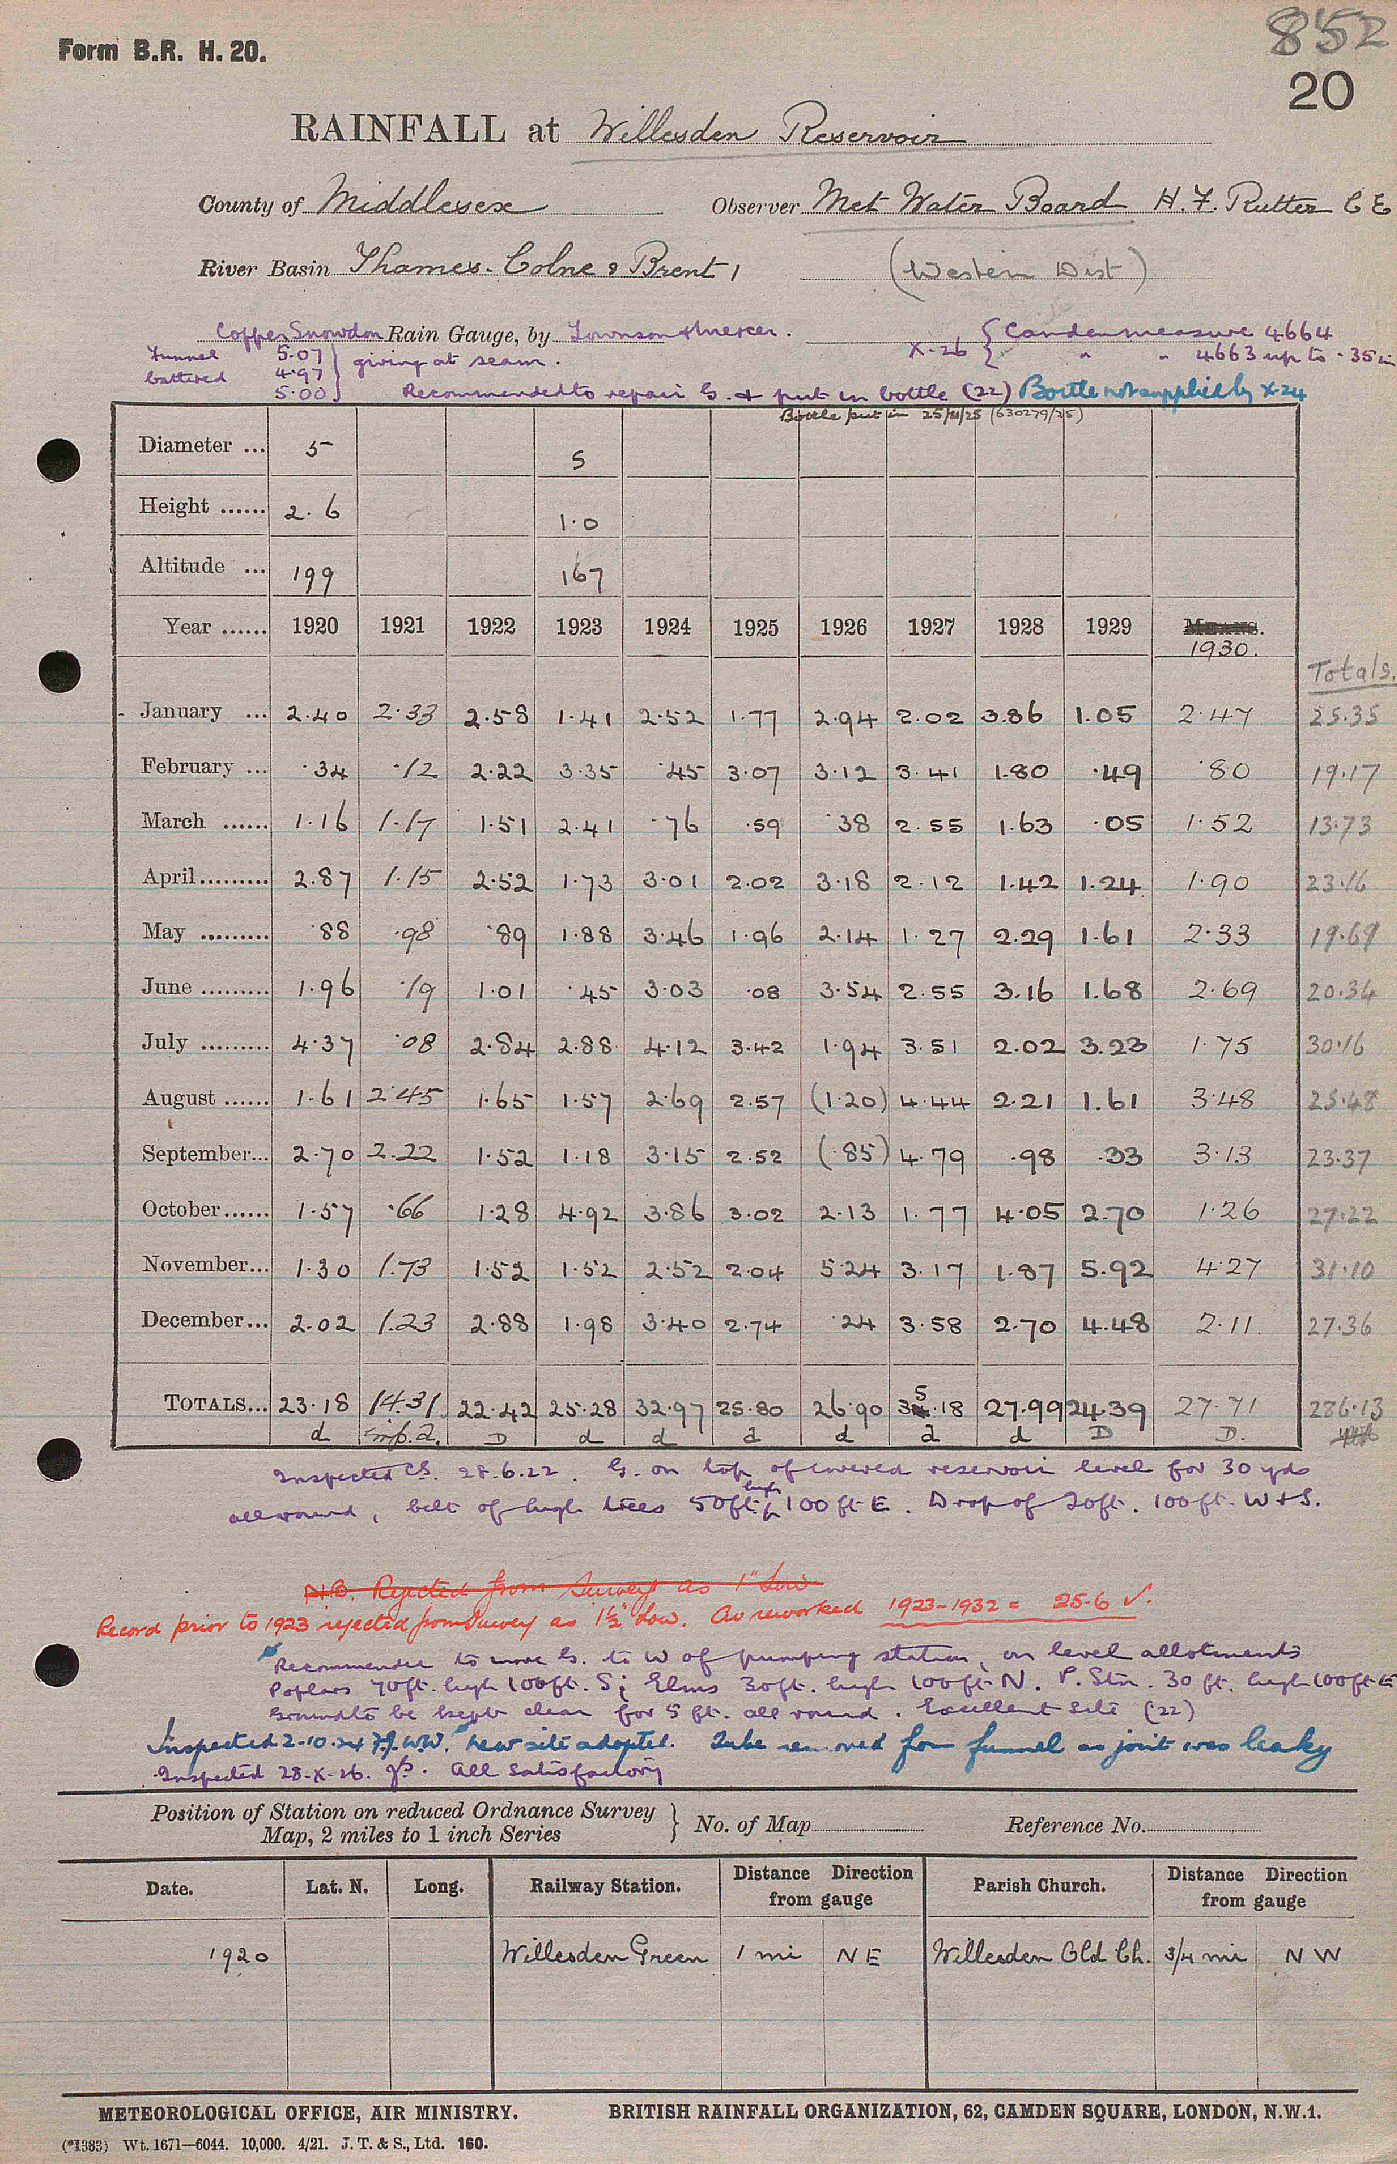 852
Form B.R. H. 20.
20
RAINFALL at Willesden Reservoir
County of Middlesex Observer Met Water Board H. F. Rutter C E
River Basin Thames. Colne & Brent 1 (Western Dist)
Copper Snowdon Rain Gauge, by Townson & Mercer. X.26 { Camden measure 4664
" " 4663 up to .35 in
Funnel battered 5.07 4.97 5.00 } giving at seam.
Recommended to repair G. & put in bottle (22) Bottle not supplied by X.24
Bottle put in 25/11/25 (630279/25)
Diameter ... 5 5
Height ...... 2.6 1.0
Altitude ... 199 167
Year ...... 1920 1921 1922 1923 1924 1925 1926 1927 1928 1929 MEANS. 1930. Totals.
January ... 2.40 2.33 2.58 1.41 2.52 1.77 2.94 2.02 3.86 1.05 2.47 25.35
February ... .34 .12 2.22 3.35 .45 3.07 3.12 3.41 1.80 .49 .80 19.17
March ...... 1.16 1.17 1.51 2.41 .76 .59 .38 2.55 1.63 .05 1.52 13.73
April ......... 2.87 1.15 2.52 1.73 3.01 2.02 3.18 2.12 1.42 1.24 1.90 23.16
May ......... .88 .98 .89 1.88 3.46 1.96 2.14 1.27 2.29 1.61 2.33 19.69
June ......... 1.96 .19 1.01 .45 3.03 .08 3.54 2.55 3.16 1.68 2.69 20.34
July ......... 4.37 .08 2.84 2.88 4.12 3.42 1.94 3.51 2.02 3.23 1.75 30.16
August ...... 1.61 2.45 1.65 1.57 2.69 2.57 (1.20) 4.44 2.21 1.61 3.48 25.48
September... 2.70 2.22 1.52 1.18 3.15 2.52 (.85) 4.79 .98 .33 3.13 23.37
October...... 1.57 .66 1.28 4.92 3.86 3.02 2.13 1.77 4.05 2.70 1.26 27.22
November... 1.30 1.73 1.52 1.52 2.52 2.04 5.24 3.17 1.87 5.92 4.27 31.10
December... 2.02 1.23 2.88 1.98 3.40 2.74 .24 3.58 2.70 4.48 2.11 27.36
TOTALS... 23.18 14.31 22.42 25.28 32.97 25.80 26.90 35.18 27.99 24.39 27.71 286.13
d imp. d. D d d d d d d D D.
Inspected CS. 28.6.22. G. on top of covered reservoir level for 30 yds
all round, belt of high trees 50ft. high 100 ft E. Drop of 20ft. 100ft. W & S.
N.B. Rejected from Survey as 1" Low
Record prior to 1923 rejected from Survey as 1½" Low. Av reworked 1923-1932 = 25.6 ✓.
Recommended to move G. to W of pumping station, on level allotments
Poplars 70ft. high 100ft. S; Elms 30ft. high 100ft N. P. Stn. 30 ft. high 100ft E
Ground to be kept clear for 5 ft. all round. Excellent site (22)
Inspected 2.10.24 new site adopted. Tube removed from funnel as joint was leaky
Inspected 28.X.26. All satisfactory
Position of Station on reduced Ordnance Survey Map, 2 miles to 1 inch Series } No. of Map Reference No.
Date. Lat. N. Long. Railway Station. Distance Direction from gauge Parish Church. Distance Direction from gauge
1920 Willesden Green 1 mi NE Willesden Old Ch. 3/4 mi NW
METEOROLOGICAL OFFICE, AIR MINISTRY. BRITISH RAINFALL ORGANIZATION, 62, CAMDEN SQUARE, LONDON, N.W.1.
(*1383) Wt. 1671—6044. 10,000. 4/21. J. T. & S., Ltd. 160.